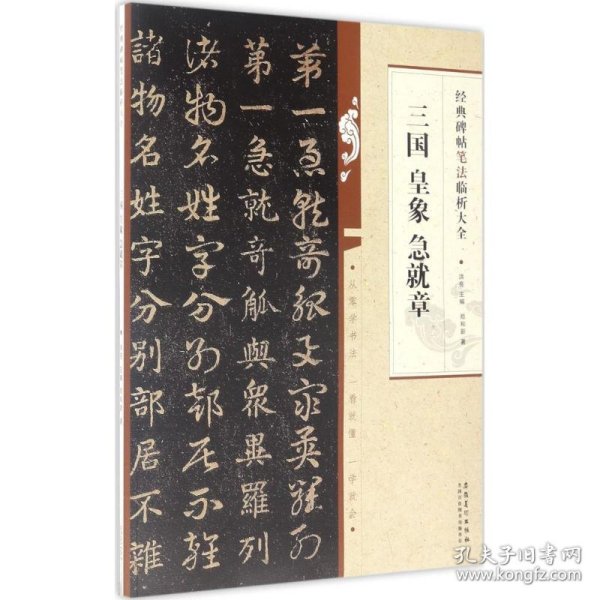 第一急就奇觚与众异罗列
第一急就奇觚與眾異羅列
诸物名姓字分别部居不杂
諸物名姓字分別部居不雜
经典碑帖笔法临析大全
三国 皇象 急就章
洪亮 主编
著
•从零学书法 一看就懂 一学就会•
安徽美术出版社
孔夫子旧书网
www.kongfz.com